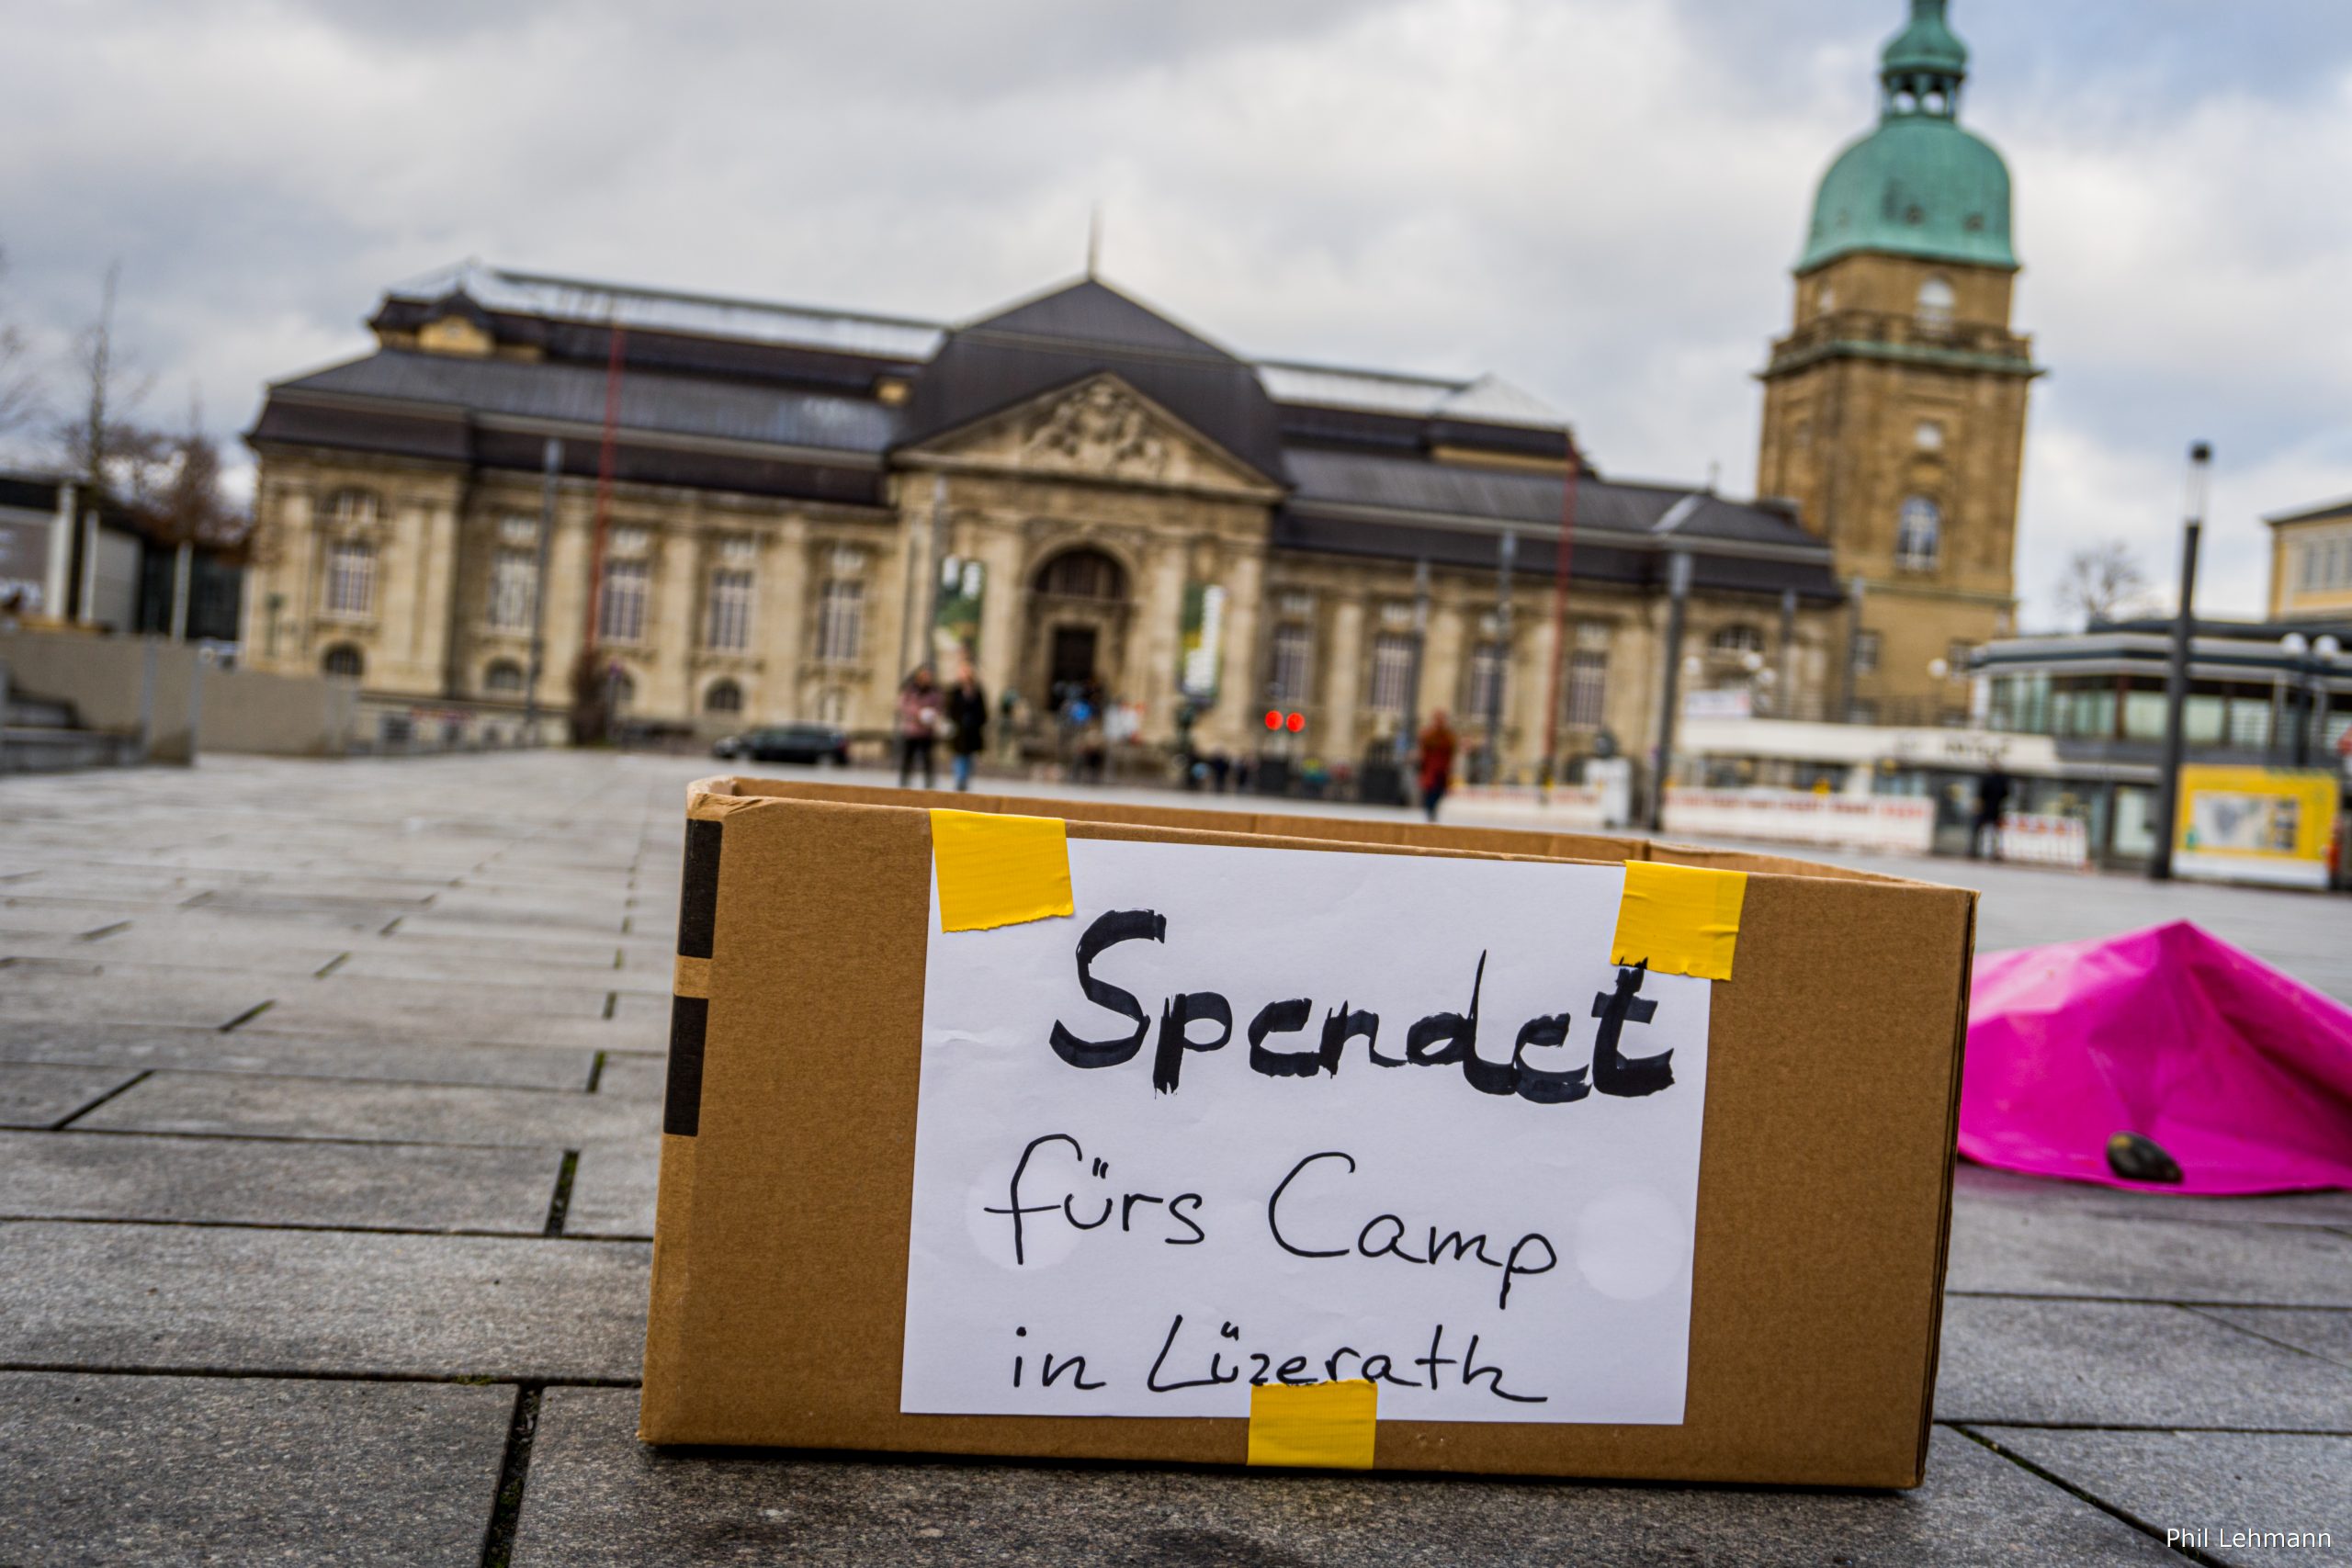 Spendet
fürs Camp
in Lüzerath
Phil Lehmann